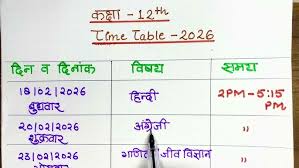 कक्षा - 12th
Time Table - 2026
दिन व दिनांक विषय समय
18/02/2026 हिन्दी 2PM - 5:15 PM
बुधवार
20/02/2026 अंग्रेजी "
शुक्रवार
23/02/2026 गणित जीव विज्ञान "